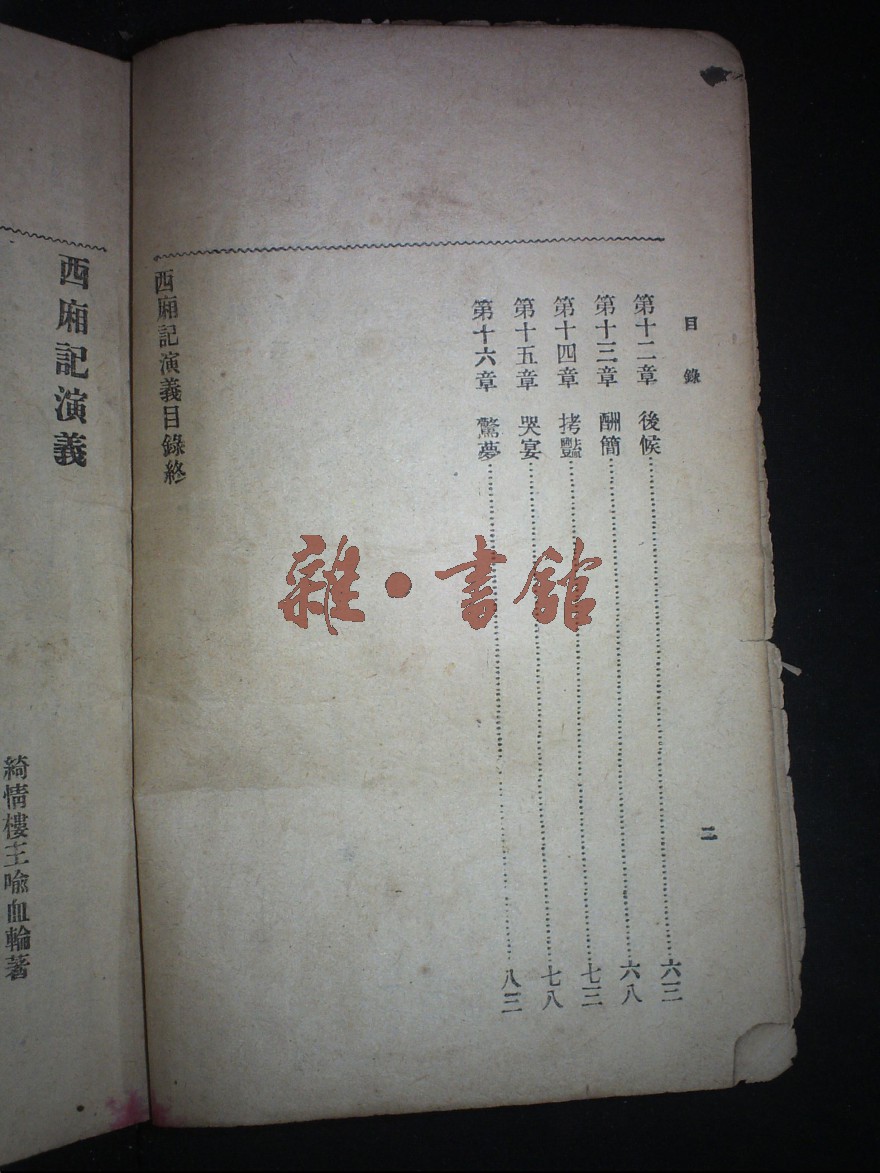 目錄
二
第十二章 後候……六三
第十三章 酬簡……六八
第十四章 拷豔……七三
第十五章 哭宴……七八
第十六章 驚夢……八三
西廂記演義目錄終
西廂記演義
綺情樓主喩血輪著
雜·書館